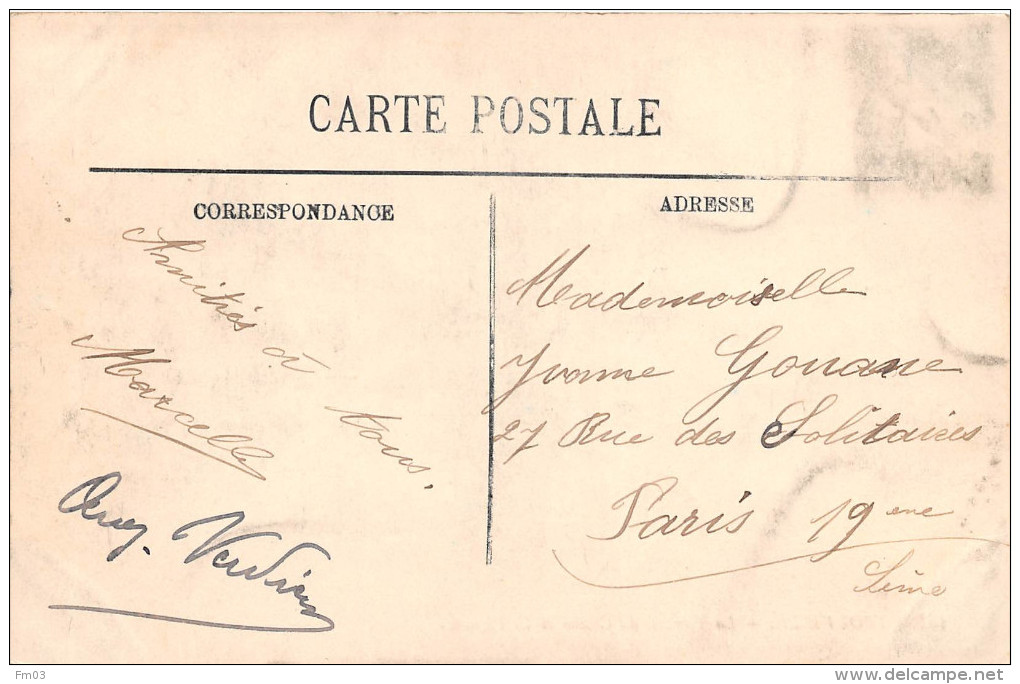 CARTE POSTALE
CORRESPONDANCE
Amitiés à tous.
Marcelle
Aug. Verdier
ADRESSE
Mademoiselle
Yvonne Gouane
27 Rue des Solitaires
Paris 19eme
Seine
Fm03
www.delcampe.net